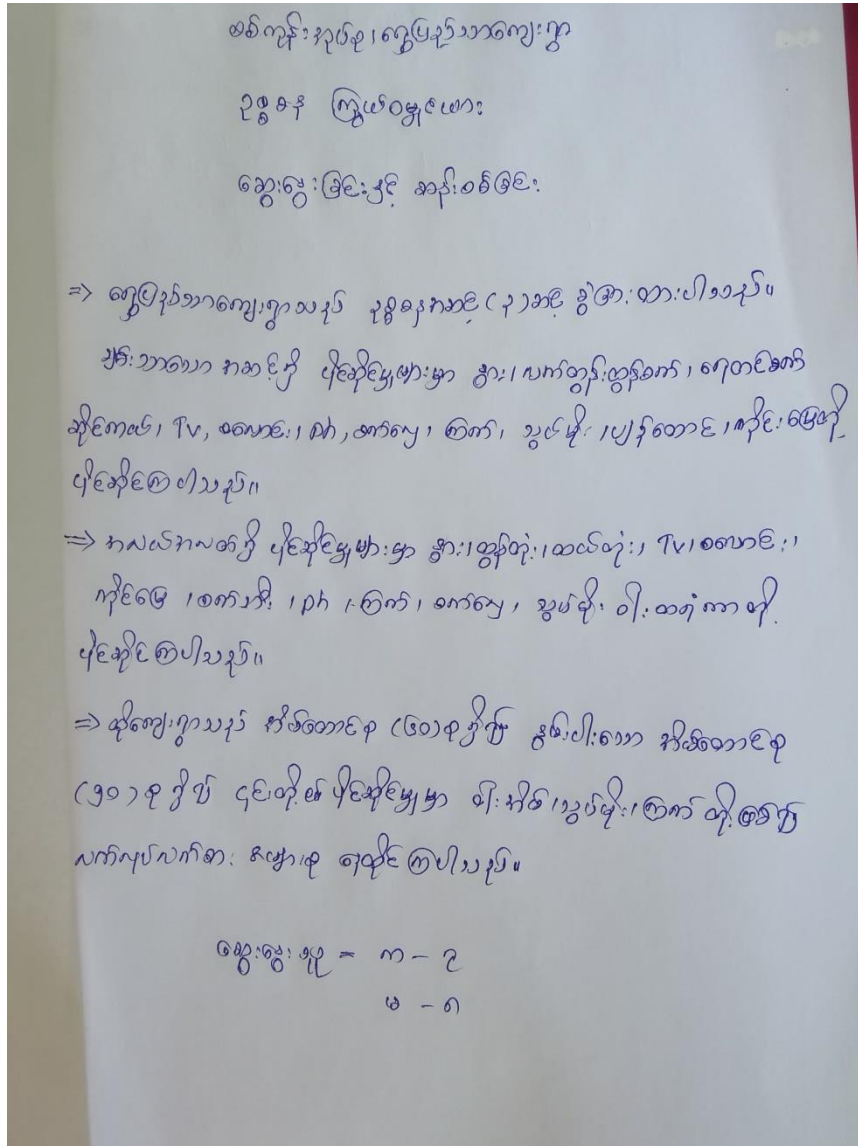 စစ်ကုန်းအုပ်စု၊ ရွှေပြည်သာကျေးရွာ
ဥစ္စာဓန ကြွယ်ဝမှုဇယား
ဆွေးနွေးခြင်းနှင့် ဆန်းစစ်ခြင်း
=> ရွှေပြည်သာကျေးရွာသည် ဥစ္စာဓနအဆင့် (၃) ဆင့် ခွဲခြားထားပါသည်။
ချမ်းသာသော အဆင့်၌ ပိုင်ဆိုင်မှုများမှာ နွား၊ လက်တွန်းထွန်စက်၊ ရေတင်စက်
ဆိုင်ကယ်၊ TV, စလောင်း၊ ph, စက်လှေ၊ ကြက်၊ သွပ်မိုး၊ ပျဉ်ထောင်၊ ကိုင်းမြေတို့
ပိုင်ဆိုင်ကြပါသည်။
=> အလယ်အလတ်၌ ပိုင်ဆိုင်မှုများမှာ နွား၊ ထွန်တုံး၊ ထယ်တုံး၊ TV၊ စလောင်း၊
ကိုင်းမြေ၊ စက်ဘီး၊ ph၊ ကြက်၊ စက်လှေ၊ သွပ်မိုး ဝါးထရံကာ တို့
ပိုင်ဆိုင်ကြပါသည်။
=> ထိုကျေးရွာသည် အိမ်ထောင်စု (၆၀) စု ရှိပြီး နွမ်းပါးသော အိမ်ထောင်စု
(၅၁) စု ရှိ၍ ၎င်းတို့၏ ပိုင်ဆိုင်မှုမှာ ဝါးအိမ်၊ သွပ်မိုး၊ ကြက် တို့ဖြစ်ပြီး
လက်လုပ်လက်စား နေထိုင်ကြပါသည်။
ဆွေးနွေးသူ = က - ၃
မ - ၈